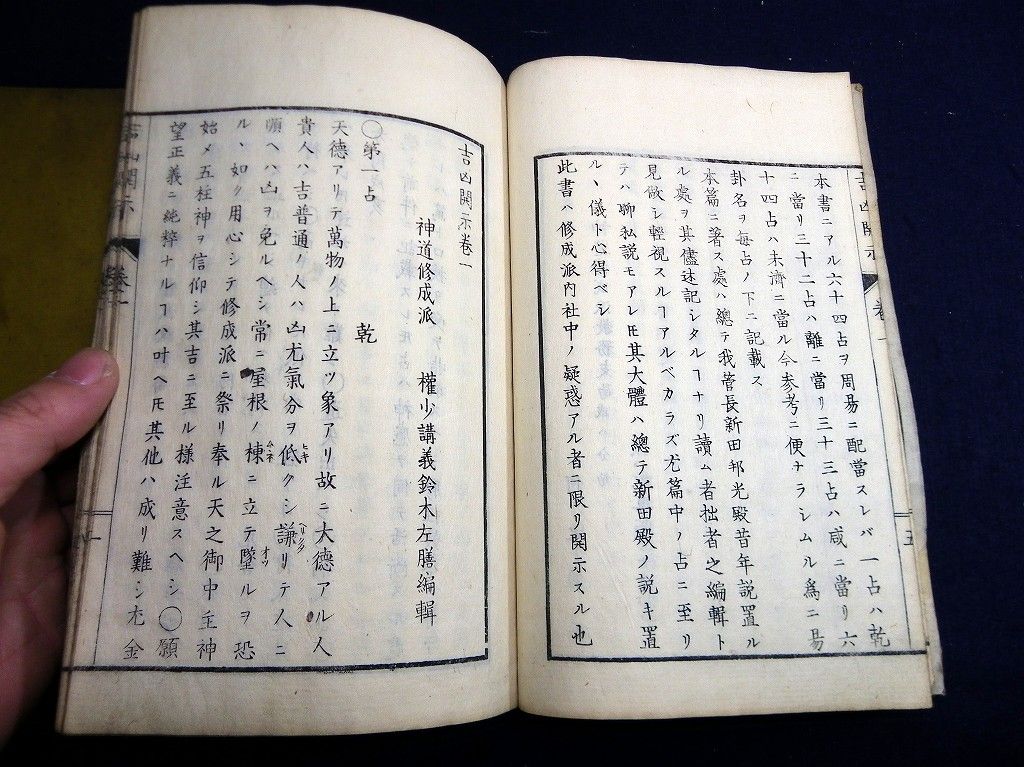 本書ニアル六十四占ヲ周易ニ配當スレバ一占ハ乾
ニ當リ三十二占ハ離ニ當リ三十三占ハ咸ニ當リ六
十四占ハ未濟ニ當ル今參考ニ便ナラシムル爲ニ昜
卦名ヲ每占ノ下ニ記載ス
本篇ニ著ス處ハ總テ我管長新田邦光殿昔年說置ル
ル處ヲ其儘述記シタルヿナリ讀ム者拙者之編輯ト
見做シ輕視スルヿアルベカラズ尤篇中ノ占ニ至リ
テハ聊私說モアレ𪜈其大體ハ總テ新田殿ノ說キ置
ル丶儀ト心得ベシ
此書ハ修成派內社中ノ疑惑アル者ニ限リ開示スル也
五
吉凶開示卷一
神道修成派 權少講義鈴木左膳編輯
○第一占 乾
天德アリテ萬物ノ上ニ立ツ象アリ故ニ大德アル人
貴人ハ吉普通ノ人ハ凶尤氣分ヲ低ヒキクシ謙ヘリクダリテ人ニ
順ヘハ凶ヲ免ルヘシ常ニ屋根ノ棟ムネニ立テ墜オツルヲ恐
ル丶如ク用心シテ修成派ニ祭リ奉ル天之御中主神
始メ五柱神ヲ信仰シ其吉ニ至ル樣注意スヘシ○願
望正義ニ純粹ナルヿハ叶ヘ𪜈其他ハ成リ難シ尤金
吉凶開示 卷一